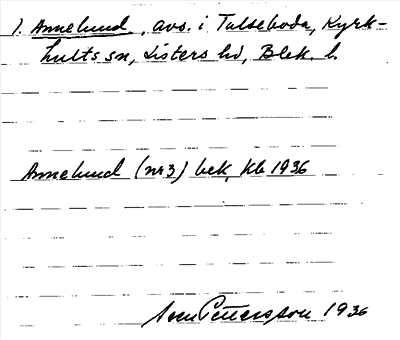 1. Annelund, avs. i Tulseboda, Kyrk-
hults sn, Listers hd, Blek. l.
Annelund (nr 3) bek. Kb 1936
Sven Pettersson 1936